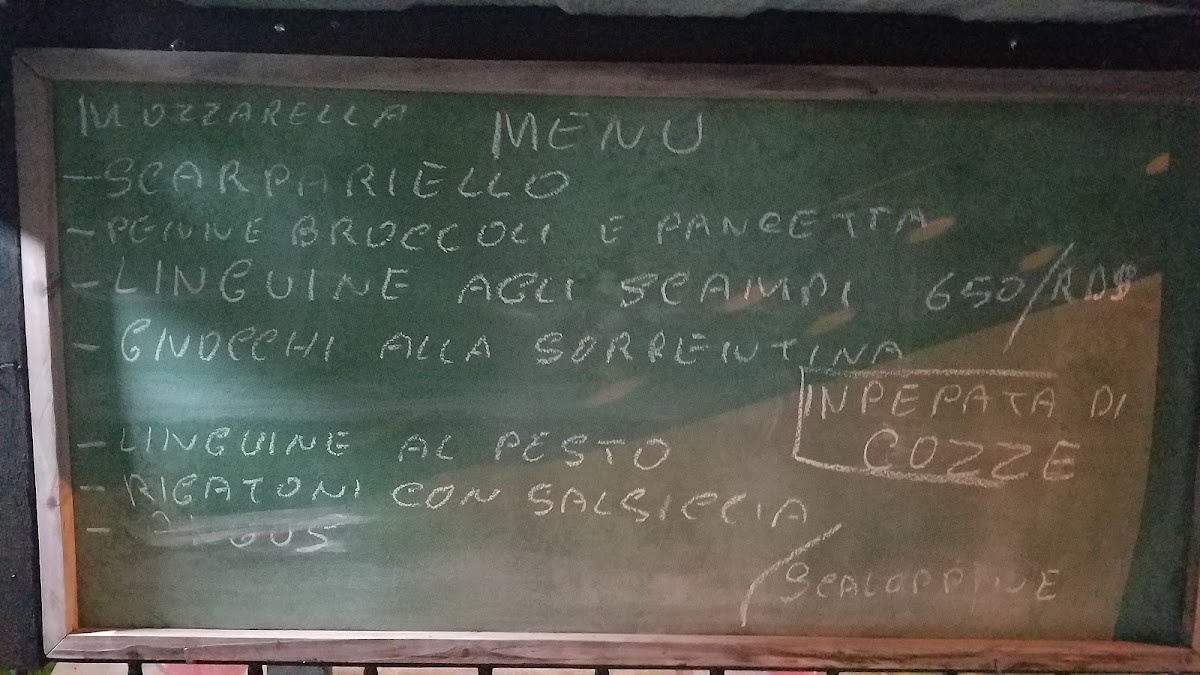 MENU
MOZZARELLA
- SCARPARIELLO
- PENNE BROCCOLI E PANCETTA
- LINGUINE AGLI SCAMPI 650/RD$
- GNOCCHI ALLA SORRENTINA
INPEPATA DI
COZZE
- LINGUINE AL PESTO
- RIGATONI CON SALSICCIA
/ SCALOPPINE